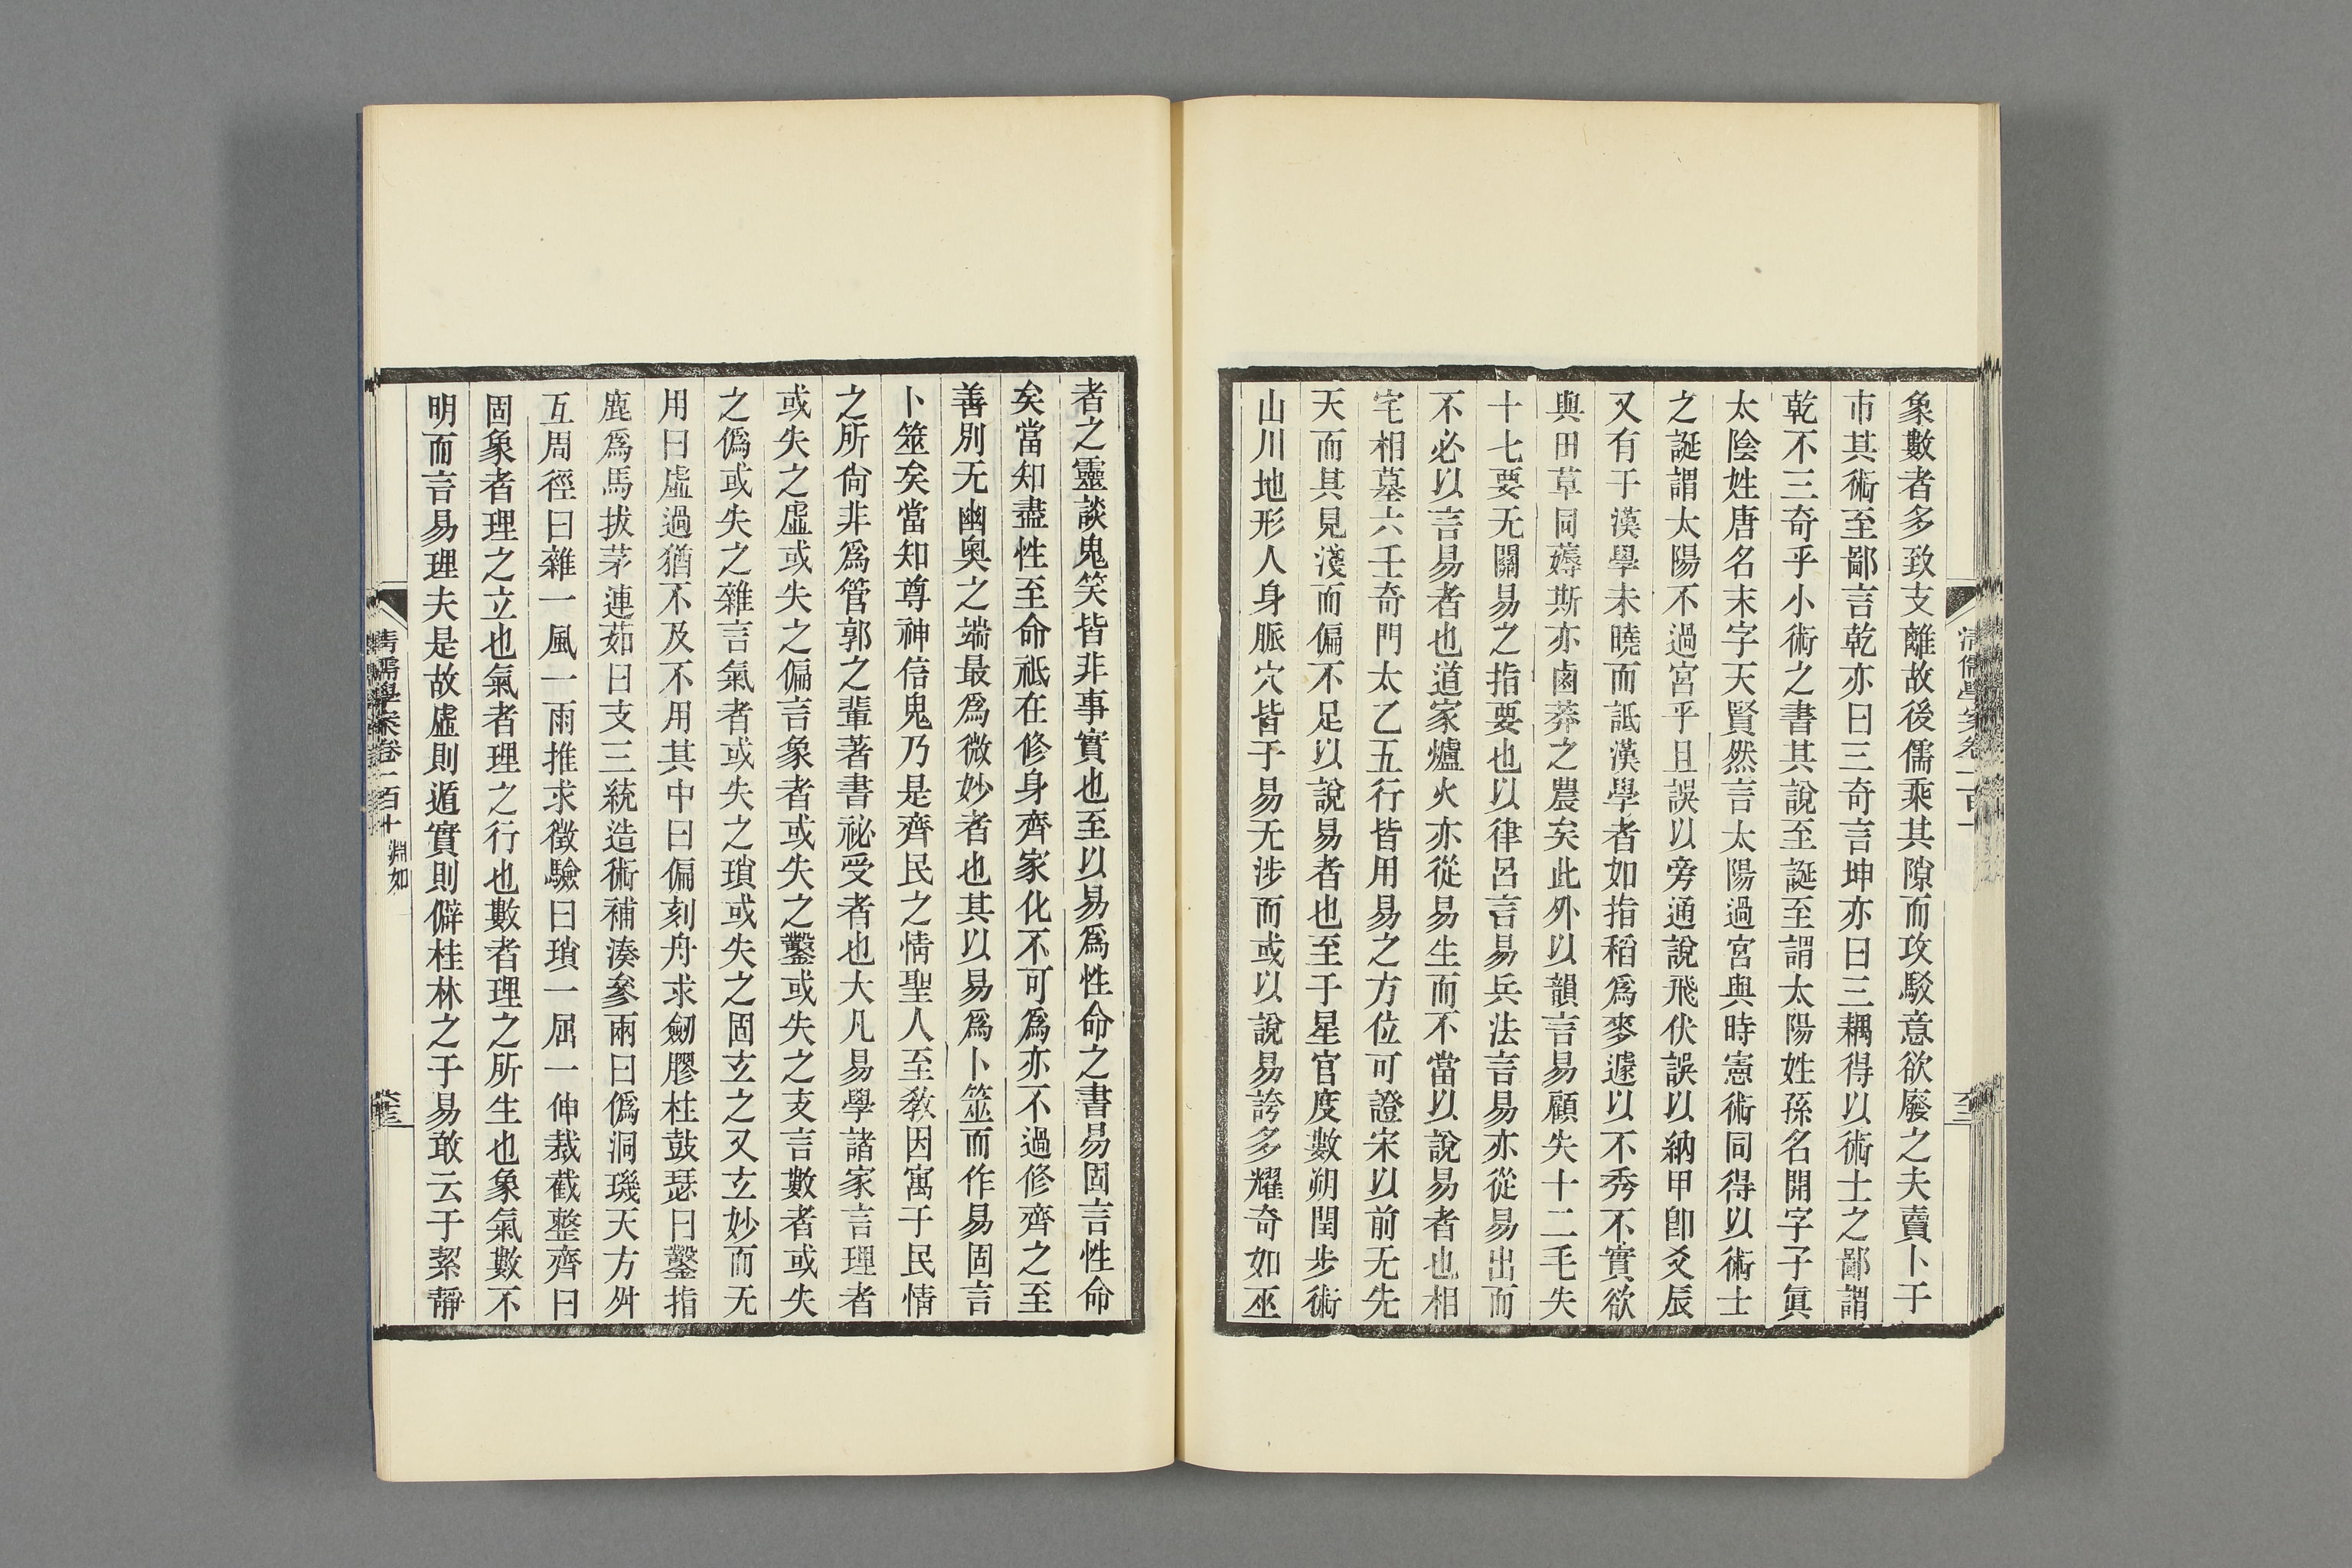 象數者多致支離故後儒乘其隙而攻駁意欲廢之夫賣卜于
市其術至鄙言乾亦曰三奇言坤亦曰三耦得以術士之鄙謂
乾不三奇乎小術之書其說至誕至謂太陽姓孫名開字子眞
太陰姓唐名末字天賢然言太陽過宮與時憲術同得以術士
之誕謂太陽不過宮乎且誤以旁通說飛伏誤以納甲卽爻辰
又有于漢學未曉而詆漢學者如指稻爲麥遽以不秀不實欲
與田草同薅斯亦鹵莽之農矣此外以韻言易顧失十二毛失
十七要无關易之指要也以律呂言易兵法言易亦從易出而
不必以言易者也道家爐火亦從易生而不當以說易者也相
宅相墓六壬奇門太乙五行皆用易之方位可證宋以前无先
天而其見淺而偏不足以說易者也至于星官度數朔閏步術
山川地形人身脈穴皆于易无涉而或以說易誇多耀奇如巫
者之靈談鬼笑皆非事實也至以易爲性命之書易固言性命
矣當知盡性至命祗在修身齊家化不可爲亦不過修齊之至
善別无幽奧之端最爲微妙者也其以易爲卜筮而作易固言
卜筮矣當知尊神信鬼乃是齊民之情聖人至敎因寓于民情
之所尙非爲管郭之輩著書祕受者也大凡易學諸家言理者
或失之虛或失之偏言象者或失之鑿或失之支言數者或失
之僞或失之雜言氣者或失之瑣或失之固玄之又玄妙而无
用曰虛過猶不及不用其中曰偏刻舟求劒膠柱鼓瑟曰鑿指
鹿爲馬拔茅連茹曰支三統造術補湊參兩曰僞洞璣天方舛
互周徑曰雜一風一雨推求徵驗曰瑣一屈一伸裁截整齊曰
固象者理之立也氣者理之行也數者理之所生也象氣數不
明而言易理夫是故虛則遁實則僻桂林之于易敢云于絜靜
清儒學案卷一百十 淵如